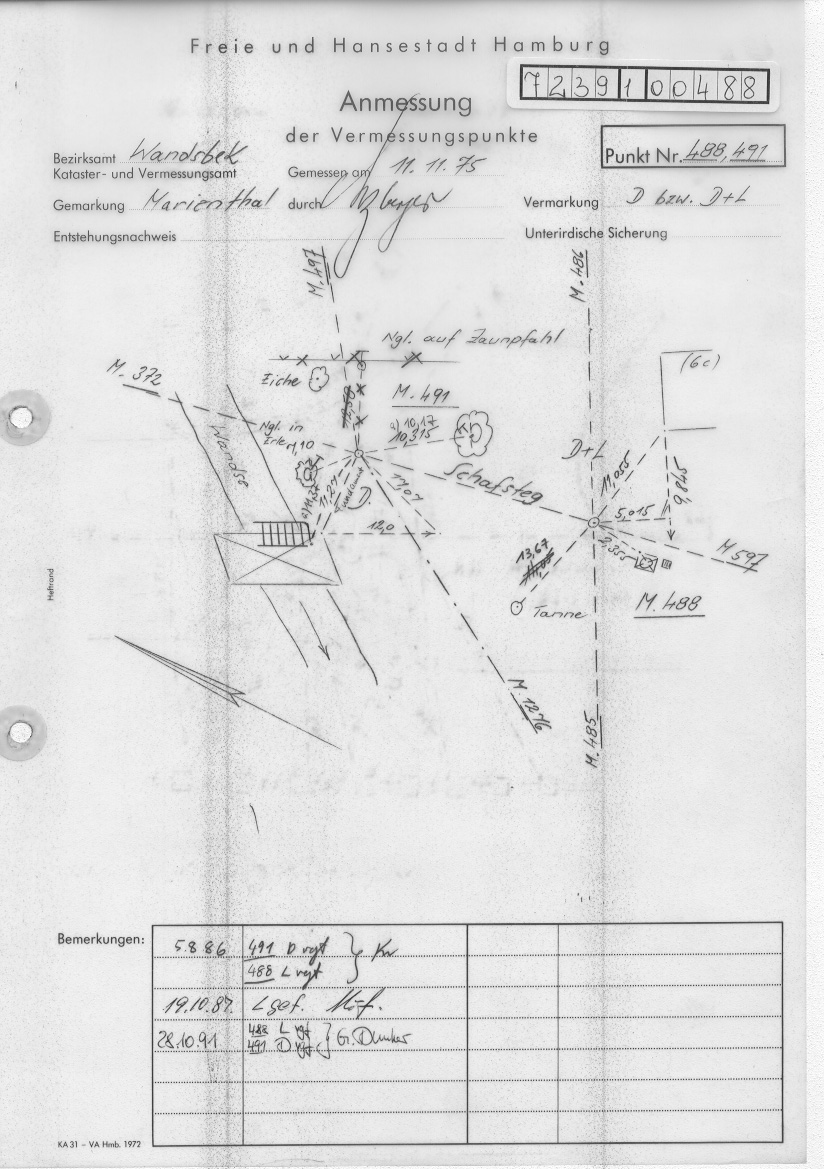 Freie und Hansestadt Hamburg
7239100488
Anmessung
der Vermessungspunkte
Punkt Nr. 488, 491
Bezirksamt Wandsbek
Kataster- und Vermessungsamt
Gemessen am 11.11.75
Gemarkung Marienthal
durch
Vermarkung D bzw. D+L
Entstehungsnachweis
Unterirdische Sicherung
M. 497
M. 486
Ngl. auf Zaunpfahl
(6c)
M. 372
Eiche
M. 491
12,60
a) 10,17
10,315
Ngl. in
Erle
1,10
Wandse
D+L
11,055
Schafsteg
9,845
a) 11,37
11,27
Fundament
D.
17,07
5,015
12,0
M 597
13,67
2,355
Tanne
M. 488
Heftrand
M. 1276
M. 485
Bemerkungen:
5.8.86 491 D vgt
488 L vgt
Kw
19.10.87. L gef.
28.10.91 488 L vgt
491 D vgt
KA 31 – VA Hmb. 1972